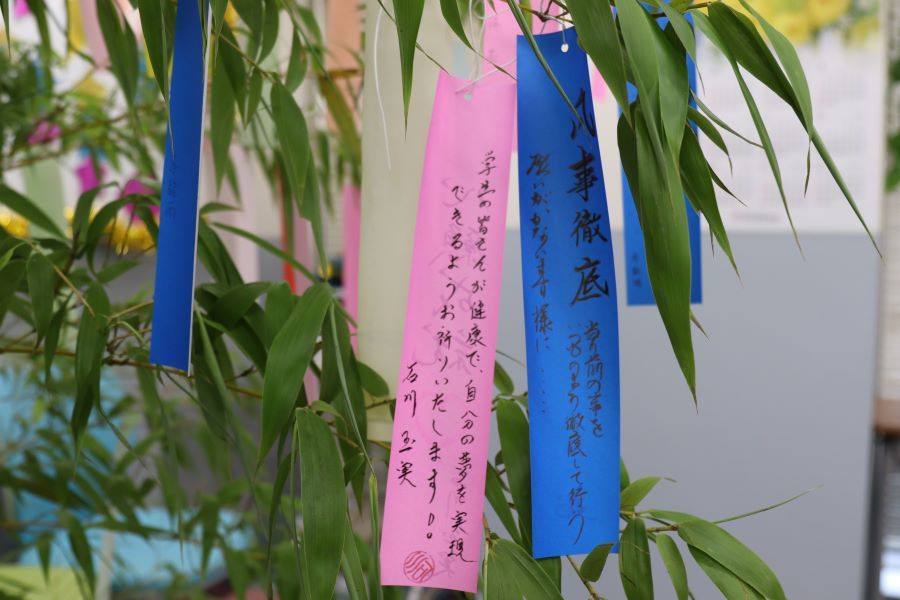 凡事徹底
当り前の事を
いつもより徹底して行う
願いがかないます様に……
学生の皆さんが健康で、自分の夢を実現
できるようお祈りいたします。
石川 玉実